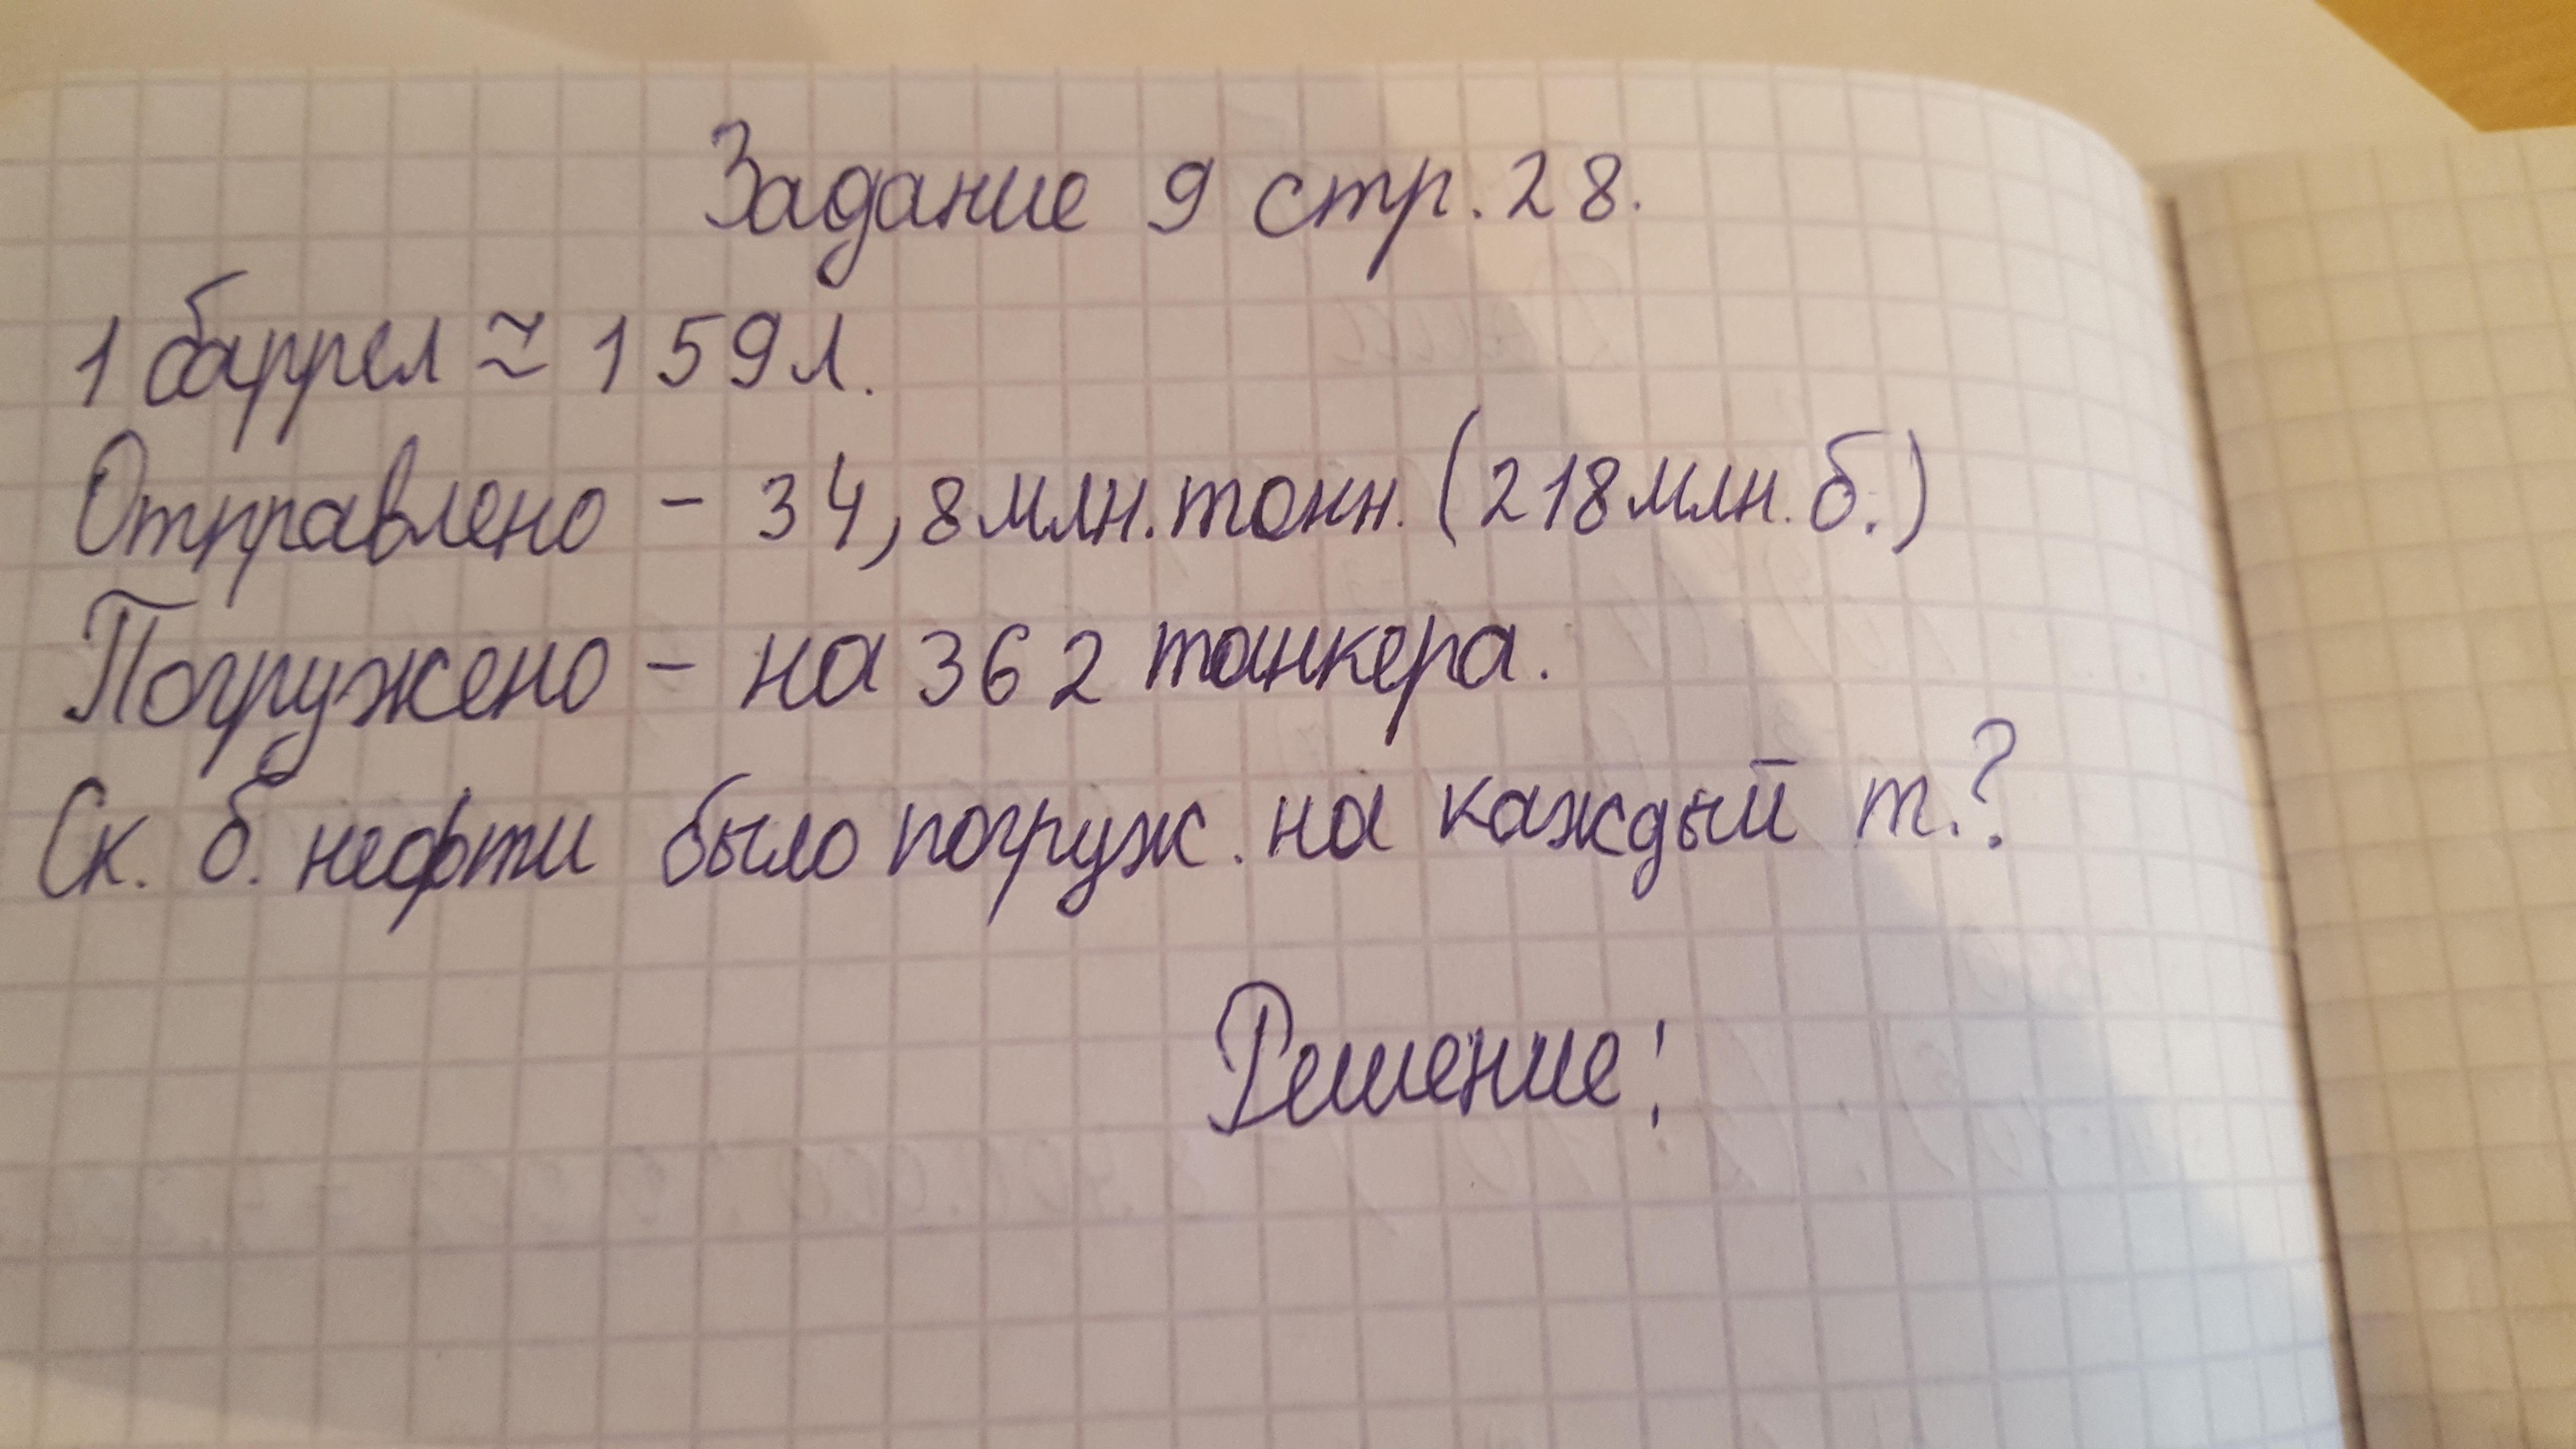 Задание 9 стр. 28.
1 баррел ≈ 159л.
Отправлено - 34,8 млн. тонн. (218 млн. б.)
Погружено - на 362 танкера.
Ск. б. нефти было погруж. на каждый т.?
Решение!